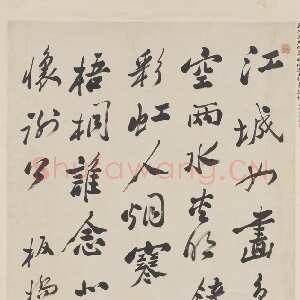 江城如畫
空兩水夾明鏡
彩虹人烟寒
梧桐誰念北
懷謝公 板橋
Shufawang.CN